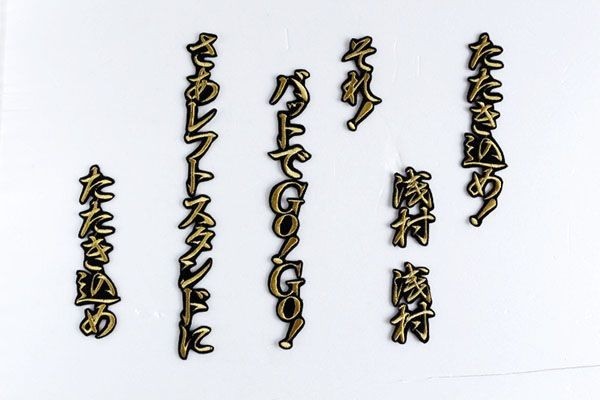 たたき込め!
浅村 浅村
それ!
バットでGO!GO!
さあレフトスタンドに
たたき込め